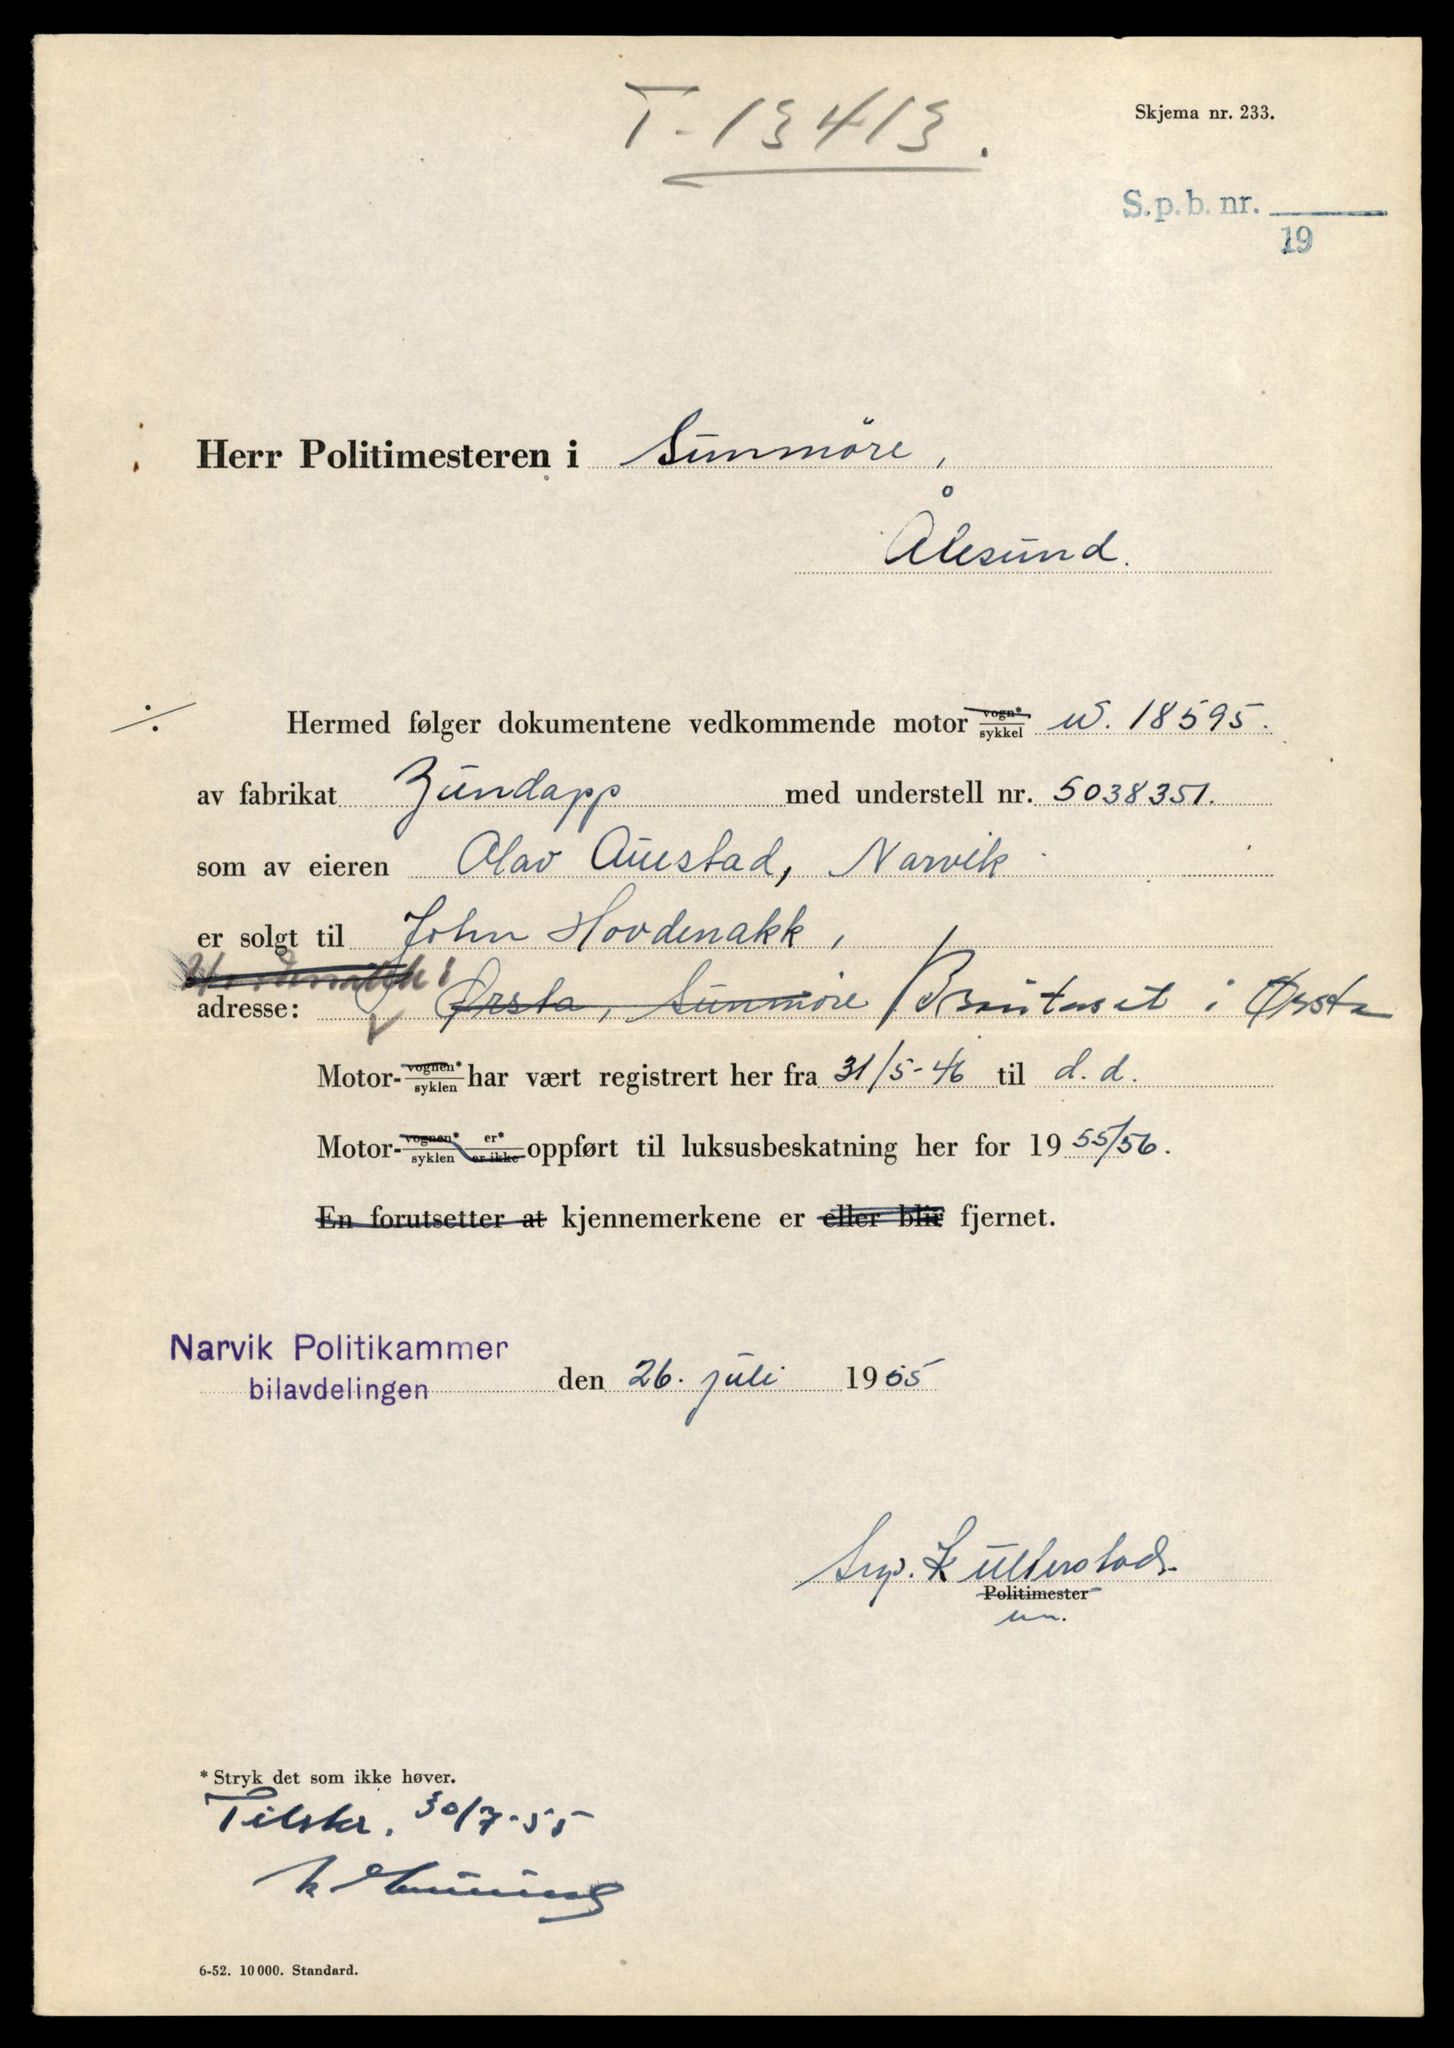 T-13413.
Skjema nr. 233.
S.p.b. nr.
19
Herr Politimesteren i Sunmöre,
Ålesund.
÷ Hermed følger dokumentene vedkommende motor vogn* sykkel W. 18595.
av fabrikat Zündapp med understell nr. 5038351.
som av eieren Olav Aüestad, Narvik
er solgt til John Hovdenakk,
adresse: Ørsta, Sunmöre i Ørsta
Motor- vognen* syklen har vært registrert her fra 31/5-46 til d.d.
Motor- vognen* syklen er* er ikke oppført til luksusbeskatning her for 1955/56.
En forutsetter at kjennemerkene er eller blir fjernet.
Narvik Politikammer
bilavdelingen den 26. juli 1955
Politimester
* Stryk det som ikke høver.
Tilskr. 30/7-55
6-52. 10 000. Standard.